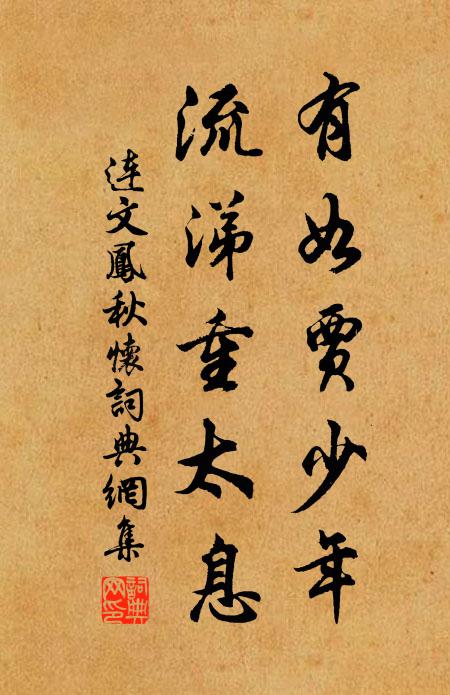 有如賈少年
流涕重太息
連文鳳秋懷詞典網集
詞典網印